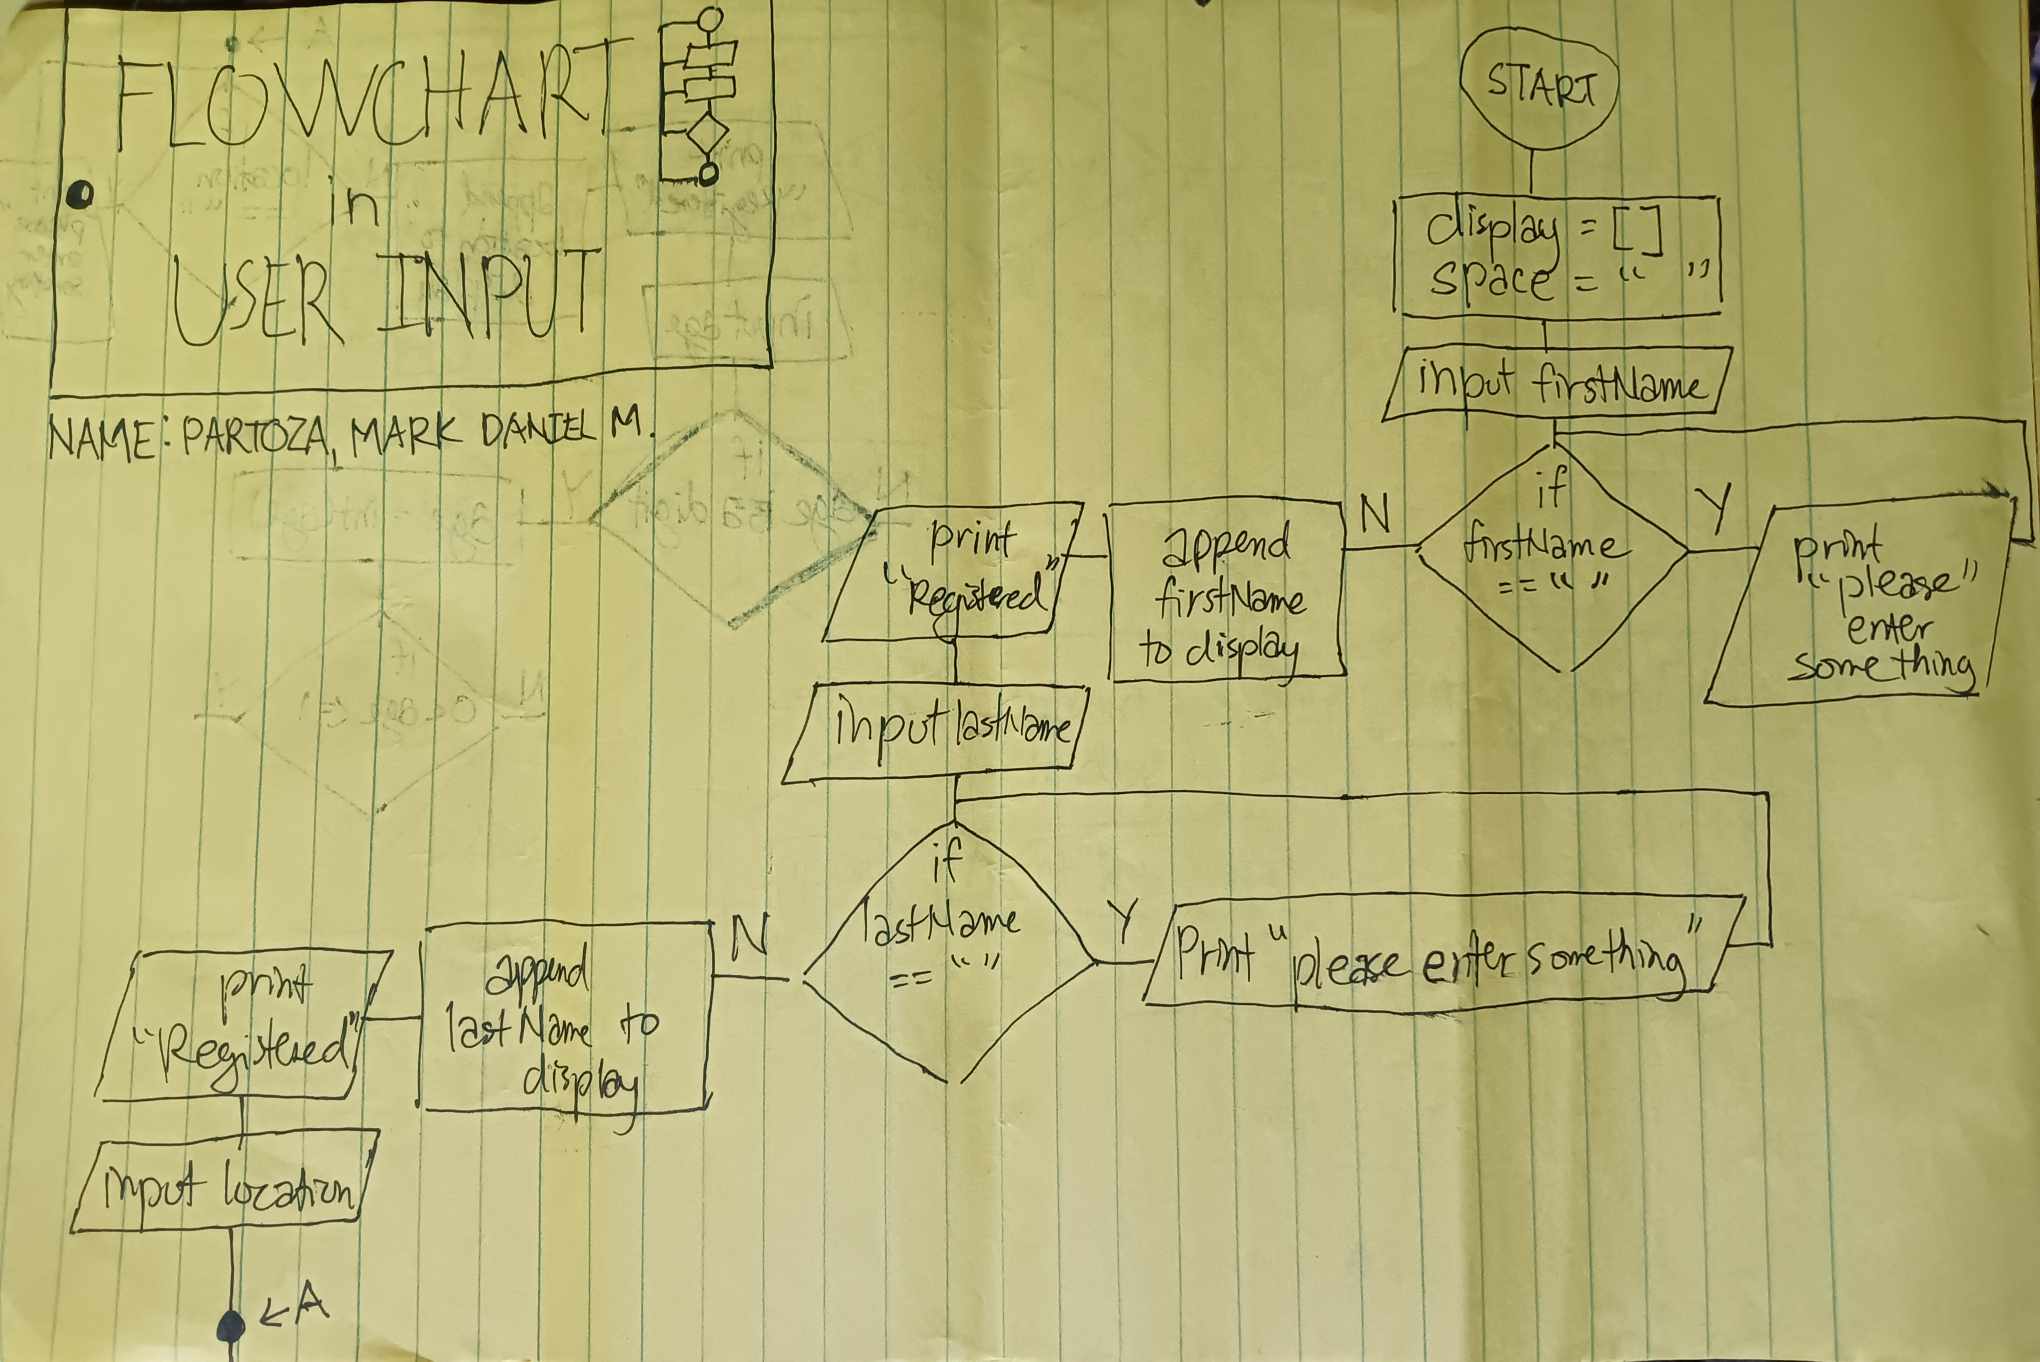 FLOWCHART
in
USER INPUT
NAME: PARTOZA, MARK DANIEL M.
START
display = []
space = “ ”
input firstName
if
firstName
== “ ”
Y
print
“please”
enter
something
N
append
firstName
to display
print
“Registered”
input lastName
if
lastName
== “ ”
Y
Print “please enter something”
N
append
lastName to
display
print
“Registered”
input location
←A